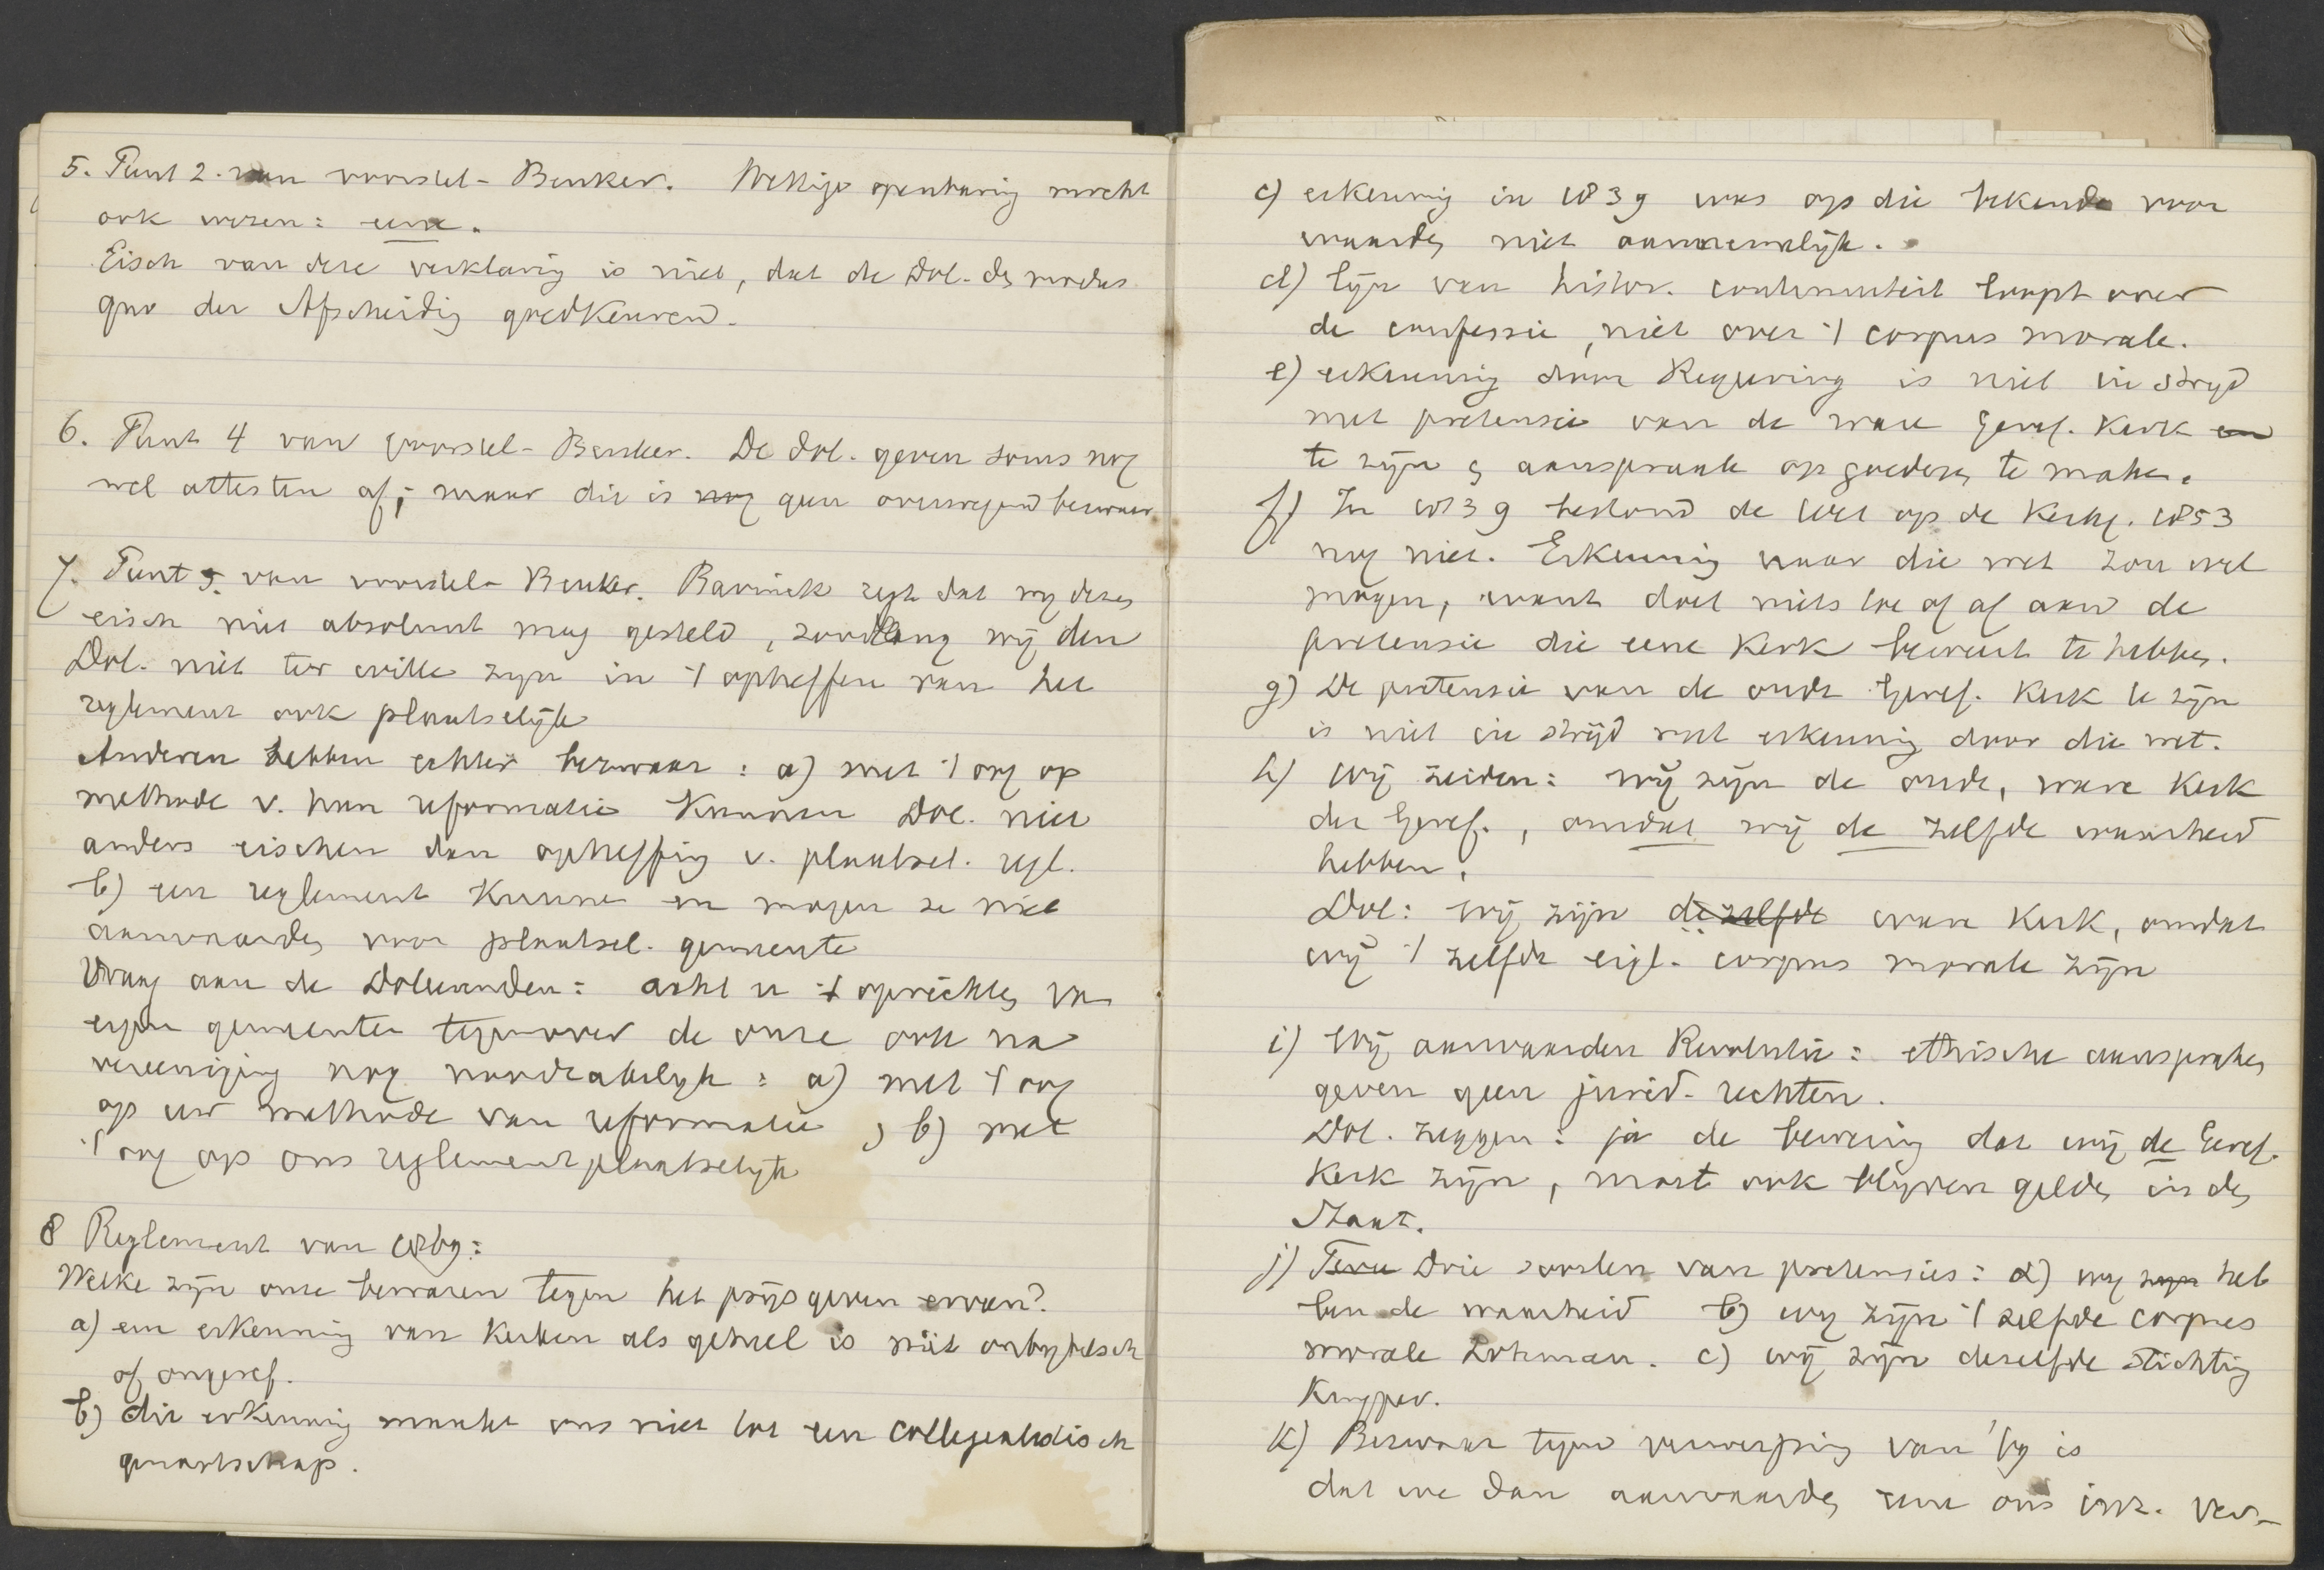 5. Punt 2. van voorstel-Beuker. Wettige openbaring mocht
ook wezen: eene.
Eisch van deze verklaring is niet, dat de Dol. de modus
quo der Afscheiding goedkeuren.
6. Punt 4 van voorstel-Beuker. De Dol. geven soms nog
wel attesten af; maar dit is nog geen overwegend bezwaar
7. Punt 5. van voorstel-Beuker. Bavinck zegt dat wy dezen
eisch niet absoluut mag gesteld, zoolang wij den
Dol. niet ter wille zijn in 't opheffen van het
reglement ook plaatselijk
Anderen hebben echter bezwaar: a) met 't oog op
methode v. hun reformatie kunnen Dol. niet
anders eischen dan opheffing v. plaatsel. regl.
b) een reglement kunnen en mogen ze niet
aanvaarden voor plaatsel. gemeente
Vraag aan de Doleerenden: acht u 't oprichten van
eigen gemeenten tegenover de onze ook na
vereeniging nog noodzakelijk: a) met 't oog
op uw methode van reformatie, b) met
't oog op ons reglement plaatselijk
8 Reglement van 1869:
Welke zijn onze bezwaren tegen het prijsgeven ervan?
a) een erkenning van Kerken als geheel is niet onbybelsch
of ongeref.
b) die erkenning maakt ons niet tot een collegialistisch
genootschap.
c) erkenning in 1839 was op die bekende voor
waarden niet aannemelijk.
d) lijn van histor. continuiteit loopt over
de confessie, niet over 't corpus morale.
e) erkenning door Regeering is niet in strijd
met pretensie van de ware Geref. Kerk en
te zijn & aanspraak op goederen te maken.
f) In 1839 bestond de Wet op de Kerkg. 1853
nog niet. Erkenning naar die wet zou wel
mogen, want doet niets toe of af aan de
pretensie die eene Kerk beweert te hebben.
g) De pretensie van de oude Geref. Kerk te zijn
is niet in strijd met erkenning door die wet.
h) Wij zeiden: wij zijn de oude, ware Kerk
der Geref., omdat wij de zelfde waarheid
hebben.
Dol: wij zijn dezelfde ware Kerk, omdat
wij 't zelfde eigl. corpus morale zijn
i) Wij aanvaarden Revolutie: ethische aanspraken
geven geen jurid. rechten.
Dol. zeggen: ja de bewering dat wij de Geref.
Kerk zijn, moet ook blijven gelden in den
Staat.
j) Twee Drie soorten van pretensies: a) wy zijn heb
ben de waarheid b) wy zijn 't zelfde corpus
morale Lohman. c) wij zijn dezelfde stichting
Kuyper.
k) Bezwaar tegen verwerping van '69 is
dat we dan aanvaarden eene ons inz. ver-